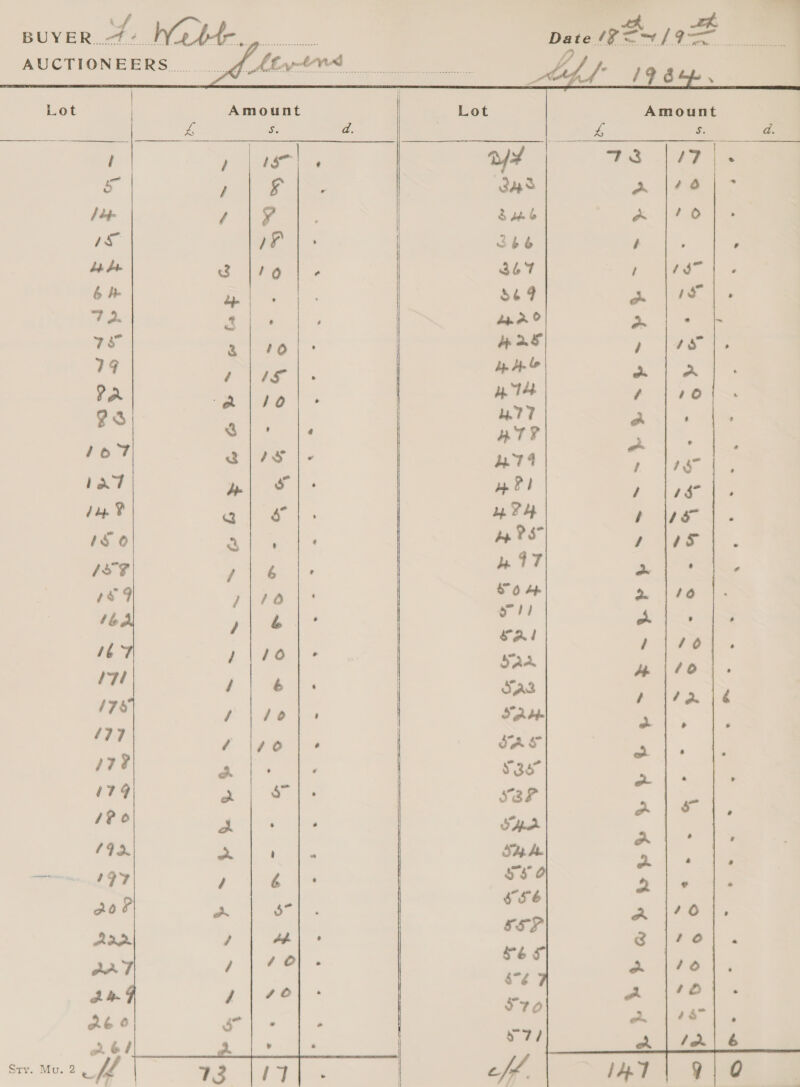 BUYER F. Webb. Date 18th/19th
AUCTIONEERS Stevens Sept 1934.
Lot Amount Lot Amount
£ s. d. £ s. d.
1 1 15 . b/f 73 17 .
5 1 8 . 343 2 10 .
14 1 8 . 346 2 10 .
15 18 . 366 1 . .
44 3 10 . 367 1 15 .
64 4 . . 369 2 15 .
72 3 . . 420 2 . .
75 3 10 . 425 1 15 .
79 1 15 . 446 2 2 .
82 2 10 . 474 1 10 .
83 3 . . 477 2 . .
107 3 15 . 478 2 . .
127 4 5 . 479 1 15 .
148 3 5 . 481 1 15 .
150 3 . . 484 1 15 .
158 1 6 . 485 1 15 .
159 1 10 . 497 2 . .
162 1 6 . 504 2 10 .
167 1 10 . 511 2 . .
171 1 6 . 521 1 10 .
175 1 10 . 522 4 10 .
177 1 10 . 523 1 12 6
178 2 . . 524 2 . .
179 2 5 . 525 2 . .
180 2 . . 535 2 . .
192 2 . . 538 2 5 .
197 1 6 . 542 2 . .
208 2 5 . 544 2 . .
222 1 4 . 550 2 . .
227 1 10 . 556 2 10 .
249 1 10 . 558 3 10 .
260 5 . . 565 2 10 .
261 2 . . 567 2 10 .
570 2 15 .
571 2 12 6
Stv. Mu. 2 c/f 73 17 . c/f. 147 9 0